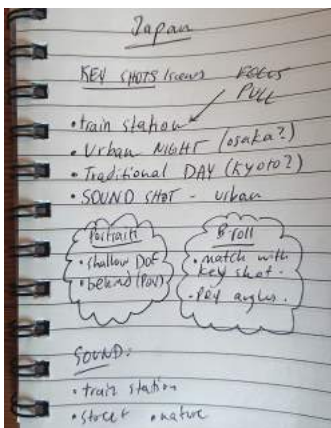 Japan
KEY SHOTS / scenes
FOCUS
PULL
• train station
• Urban NIGHT (osaka?)
• Traditional DAY (kyoto?)
• SOUND SHOT - urban
Portrait
• shallow DOF
• behind (POV)
B-roll
• match with
key shot.
• angles.
SOUND:
• train station
• street • nature